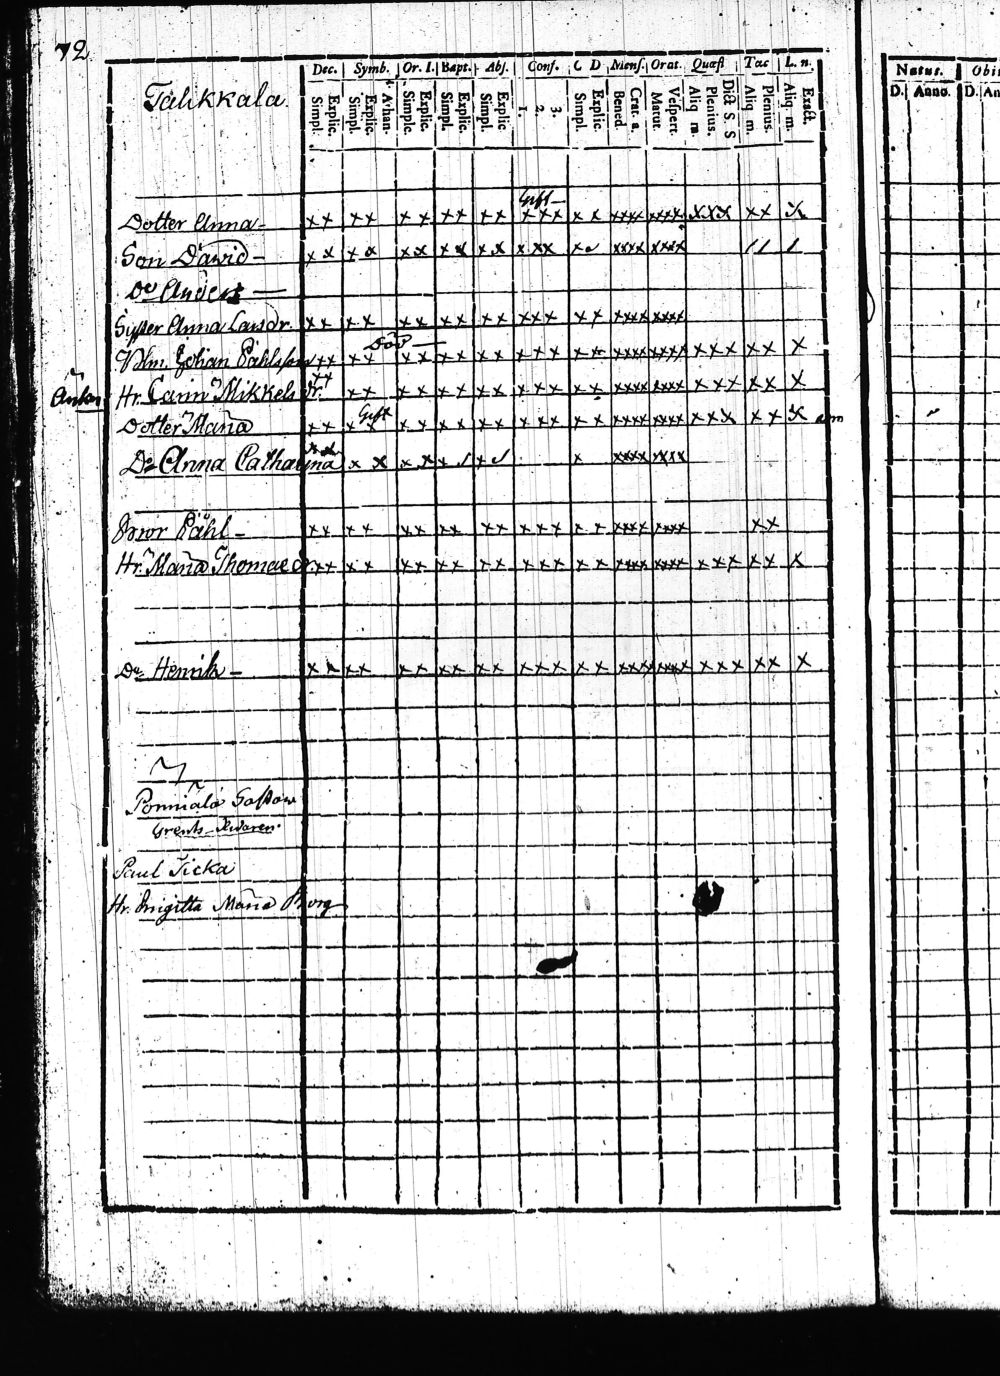 72
Dec. Symb. Or. I. Bapt. Abs. Conf. C D Mens. Orat. Quæst Tac L. n. Natus. Obi
Talikkala.
Simpl. Explic. Simpl. Explic. Athan. Simpl. Explic. Simpl. Explic. Simpl. Explic. 1. 2. 3. Simpl. Explic. Bened. Grat. a. Matut. Vespert. Aliq m. Plenius. Dict S. S Aliq m. Plenius. Aliq. m. Exact. D. Anno. D. An
Gift
Dotter Anna xx xx xx xx xx xxx xx xxxx xxxx xxx xx x
Son David xx xx xx xx xx xxx x xxxx xxxx
Do Anders
Syster Anna Larsdr. xx xx xx xx xx xxx xx xxxx xxxx
Död
Johan Påhlsson xx xx xx xx xx xxx xx xxxx xxxx xxx xx x
Enkan Hr. Carin Mikkelsdr. xx xx xx xx xx xxx xx xxxx xxxx xxx xx x
Gift
Dotter Maria xx xx xx xx xx xxx xx xxxx xxxx xxx xx x
Do Anna Catharina xx xx xx x x x xxxx xxxx
Bror Påhl xx xx xx xx xx xxx xx xxxx xxxx xx
Hr. Maria Thomaedr. xx xx xx xx xx xxx xx xxxx xxxx xxx xx x
Do Henrik xx xx xx xx xx xxx xx xxxx xxxx xxx xx x
Ponniala
Paul Ticka
Hr. Brigitta Maria Borg